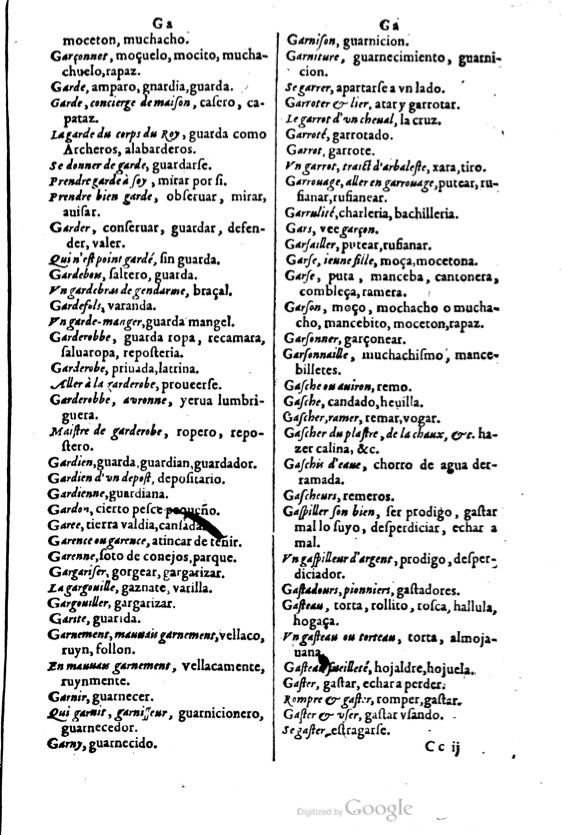 Ga
moceton, muchacho.
Garçonnet, moçuelo, mocito, mucha-
chuelo, rapaz.
Garde, amparo, gnardia, guarda.
Garde, concierge de maiſon, caſero, ca-
pataz.
La garde du corps du Roy, guarda como
Archeros, alabarderos.
Se donner de garde, guardarſe.
Prendre garde à ſoy, mirar por ſi.
Prendre bien garde, obſeruar, mirar,
auiſar.
Garder, conſeruar, guardar, defen-
der, valer.
Qui n'eſt point gardé, ſin guarda.
Gardebou, ſaltero, guarda.
Vn gardebras de gendarme, braçal.
Gardefols, varanda.
Vn garde-manger, guarda mangel.
Garderobbe, guarda ropa, recamara,
ſaluaropa, repoſteria.
Garderobe, priuada, latrina.
Aller à la garderobe, proueerſe.
Garderobbe, auronne, yerua lumbri-
guera.
Maiſtre de garderobe, ropero, repo-
ſtero.
Gardien, guarda, guardian, guardador.
Gardien d'vn depoſt, depoſitario.
Gardienne, guardiana.
Gardon, cierto peſce pequeño.
Garee, tierra valdia, canſada.
Garence ou garence, atincar de teñir.
Garenne, ſoto de conejos, parque.
Gargariſer, gorgear, gargarizar.
La gargouille, gaznate, varilla.
Gargouiller, gargarizar.
Garite, guarida.
Garnement, mauuais garnement, vellaco,
ruyn, follon.
En mauuais garnement, vellacamente,
ruynmente.
Garnir, guarnecer.
Qui garnit, garniſſeur, guarnicionero,
guarnecedor.
Garny, guarnecido.
Ga
Garniſon, guarnicion.
Garniture, guarnecimiento, guarni-
cion.
Se garrer, apartarſe a vn lado.
Garroter & lier, atar y garrotar.
Le garrot d'vn cheual, la cruz.
Garroté, garrotado.
Garrot, garrote.
Vn garrot, traict d'arbaleſte, xara, tiro.
Garrouage, aller en garrouage, putear, ru-
fianar, rufianear.
Garrulité, charleria, bachilleria.
Gars, vee garçon.
Garſailler, putear, rufianar.
Garſe, ieune fille, moça, mocetona.
Garſe, puta, manceba, cantonera,
combleça, ramera.
Garſon, moço, mochacho o mucha-
cho, mancebito, moceton, rapaz.
Garſonner, garçonear.
Garſonnaille, muchachiſmo, mance-
billetes.
Gaſche ou auiron, remo.
Gaſche, candado, heuilla.
Gaſcher, ramer, remar, vogar.
Gaſcher du plaſtre, de la chaux, &c. ha-
zer calina, &c.
Gaſchis d'eaue, chorro de agua der-
ramada.
Gaſcheurs, remeros.
Gaſpiller ſon bien, ſer prodigo, gaſtar
mal lo ſuyo, deſperdiciar, echar a
mal.
Vn gaſpilleur d'argent, prodigo, deſper-
diciador.
Gaſtadours, pionniers, gaſtadores.
Gaſteau, torta, rollito, roſca, hallula,
hogaça.
Vn gaſteau ou torteau, torta, almoja-
uana.
Gaſteau fueilleté, hojaldre, hojuela.
Gaſter, gaſtar, echar a perder.
Rompre & gaſter, romper, gaſtar.
Gaſter & vſer, gaſtar vſando.
Se gaſter, eſtragarſe.
Cc ij
Digitized by Google